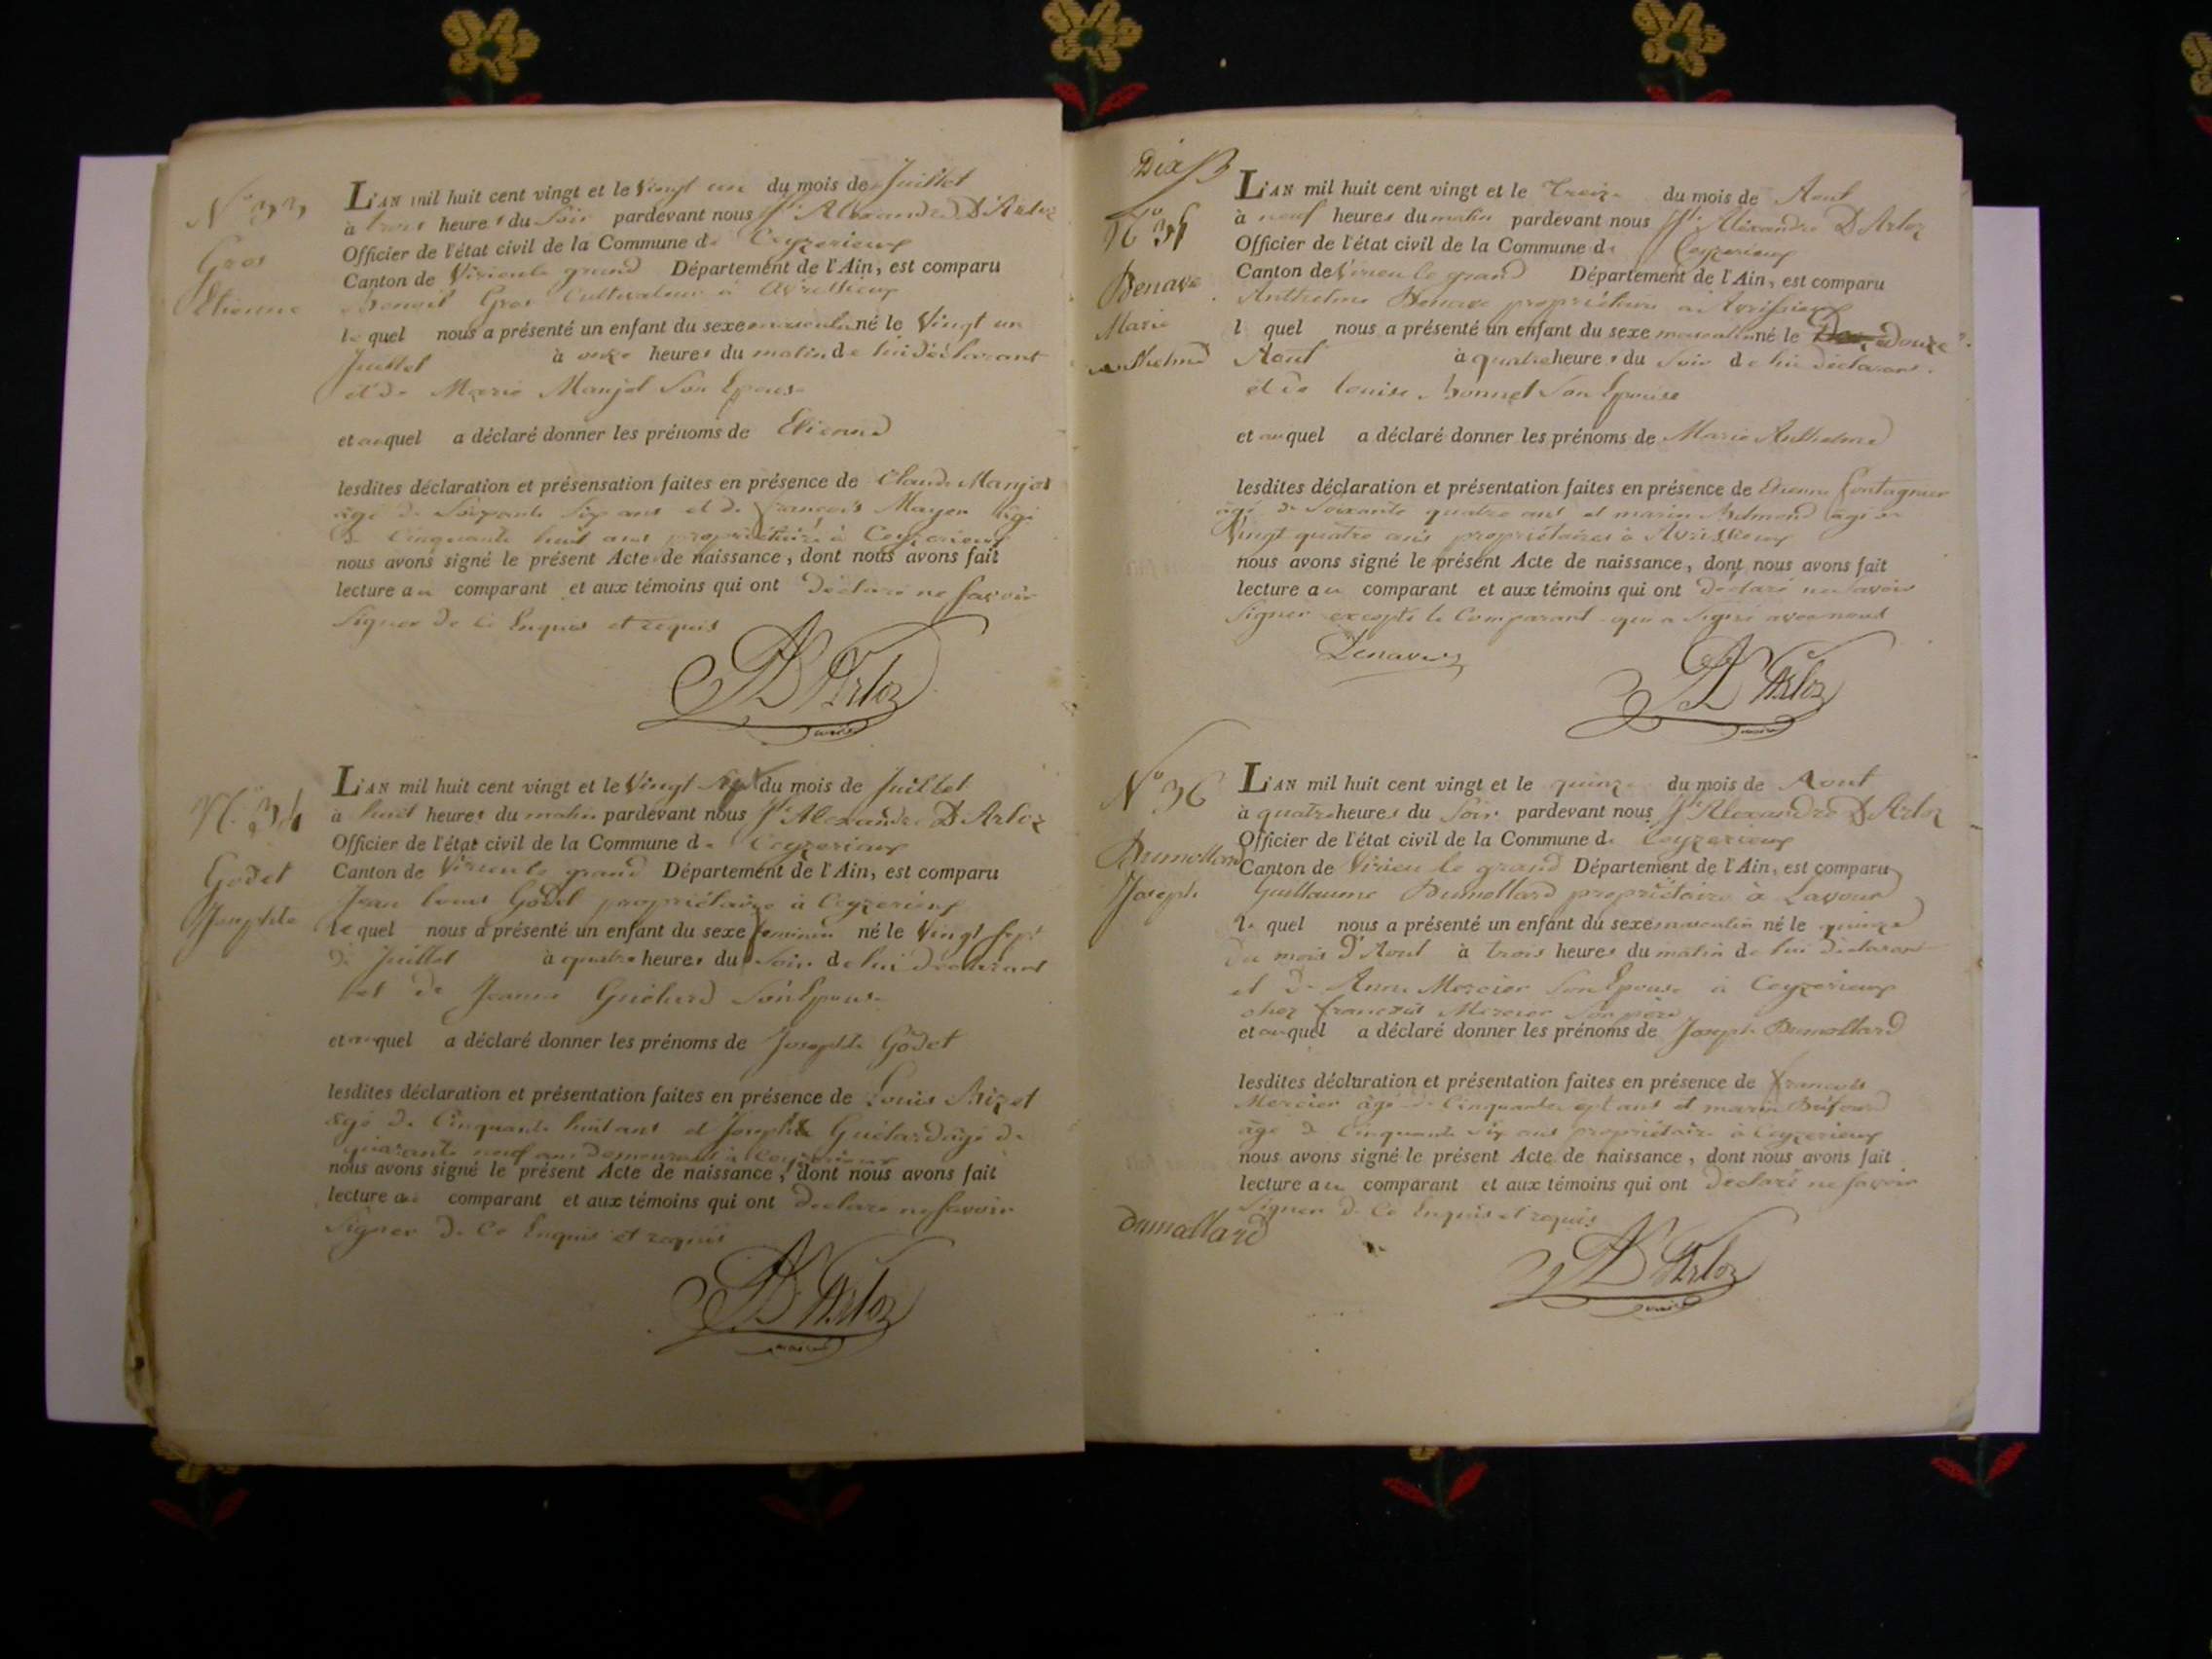 N° 33
Gros
Etienne
L'AN mil huit cent vingt et le Vingt un du mois de Juillet
à trois heures du Soir pardevant nous Alexandre D'Arloz
Officier de l'état civil de la Commune de Ceyzerieux
Canton de Virieu le grand Département de l'Ain, est comparu
Benoit Gros Cultivateur à Avressieux
lequel nous a présenté un enfant du sexe masculin né le Vingt un
Juillet à onze heures du matin de lui déclarant
et de Marie Manjot Son Epouse
et auquel a déclaré donner les prénoms de Etienne
lesdites déclaration et présensation faites en présence de Claude Manjot
âgé de Soixante Six ans et de françois Mayen âgé
de Cinquante huit ans propriétaire à Ceyzerieux
nous avons signé le présent Acte de naissance, dont nous avons fait
lecture au comparant et aux témoins qui ont Déclaré ne Savoir
Signer de Ce Enquis et requis
D'Arloz
N° 34
Godet
Josephte
L'AN mil huit cent vingt et le Vingt Sept du mois de Juillet
à huit heures du matin pardevant nous Alexandre D'Arloz
Officier de l'état civil de la Commune de Ceyzerieux
Canton de Virieu le grand Département de l'Ain, est comparu
Jean Louis Godet propriétaire à Ceyzerieux
lequel nous a présenté un enfant du sexe feminin né le Vingt Sept
de Juillet à quatre heures du Soir de lui déclarant
et de Jeanne Son Epouse
et auquel a déclaré donner les prénoms de Josephte Godet
lesdites déclaration et présentation faites en présence de Louis
âgé de Cinquante huit ans et Joseph âgé de
quarante neuf ans demeurant à Ceyzerieux
nous avons signé le présent Acte de naissance, dont nous avons fait
lecture au comparant et aux témoins qui ont Déclaré ne Savoir
Signer de Ce Enquis et requis
D'Arloz
Dix
N° 35
Benave
Marie
Anthelme
L'AN mil huit cent vingt et le Treize du mois de Aout
à neuf heures du matin pardevant nous Alexandre D'Arloz
Officier de l'état civil de la Commune de Ceyzerieux
Canton de Virieu le grand Département de l'Ain, est comparu
Anthelme Benave propriétaire à Avrissieux
lquel nous a présenté un enfant du sexe masculin né le Douze
Aout à quatre heures du Soir de lui déclarant
et de Louise Bonnet Son Epouse
et auquel a déclaré donner les prénoms de Marie Anthelme
lesdites déclaration et présentation faites en présence de Etienne Fontagnier
âgé de Soixante quatre ans et marin âgé de
Vingt quatre ans propriétaires à Avrissieux
nous avons signé le présent Acte de naissance, dont nous avons fait
lecture au comparant et aux témoins qui ont déclaré ne Savoir
Signer excepté le Comparant qui a Signé avec nous
D'Arloz
N° 36
Dumollard
Joseph
L'AN mil huit cent vingt et le quinze du mois de Aout
à quatre heures du Soir pardevant nous Alexandre D'Arloz
Officier de l'état civil de la Commune de Ceyzerieux
Canton de Virieu le grand Département de l'Ain, est comparu
Guillaume Dumollard propriétaire à Lavour
lequel nous a présenté un enfant du sexe masculin né le quinze
du mois D'Aout à trois heures du matin de lui déclarant
et de Anne Mercier Son Epouse à Ceyzerieux
chez françois Mercier Son père
et auquel a déclaré donner les prénoms de Joseph Dumollard
lesdites déclaration et présentation faites en présence de françois
Mercier âgé de Cinquante sept ans et marin
âgé de Cinquante Six ans propriétaire à Ceyzerieux
nous avons signé le présent Acte de naissance, dont nous avons fait
lecture au comparant et aux témoins qui ont Déclaré ne Savoir
Signer de Ce Enquis et requis
Dumollard
D'Arloz